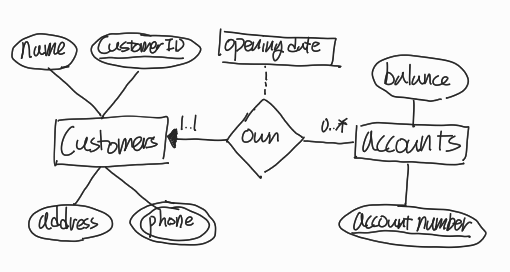 name
CustomerID
opening date
balance
Customers
1..1
own
0..*
accounts
address
phone
account number